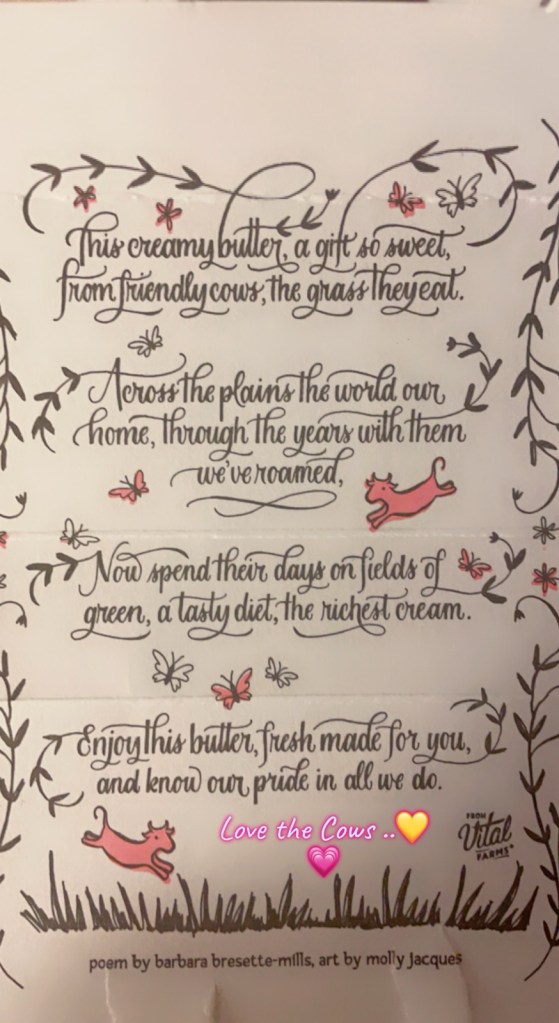 This creamy butter, a gift so sweet,
from friendly cows, the grass they eat.
Across the plains the world our
home, through the years with them
we've roamed,
Now spend their days on fields of
green, a tasty diet, the richest cream.
Enjoy this butter, fresh made for you,
and know our pride in all we do.
Love the Cows ..💛
💗
FROM
Vital
FARMS®
poem by barbara bresette-mills, art by molly jacques